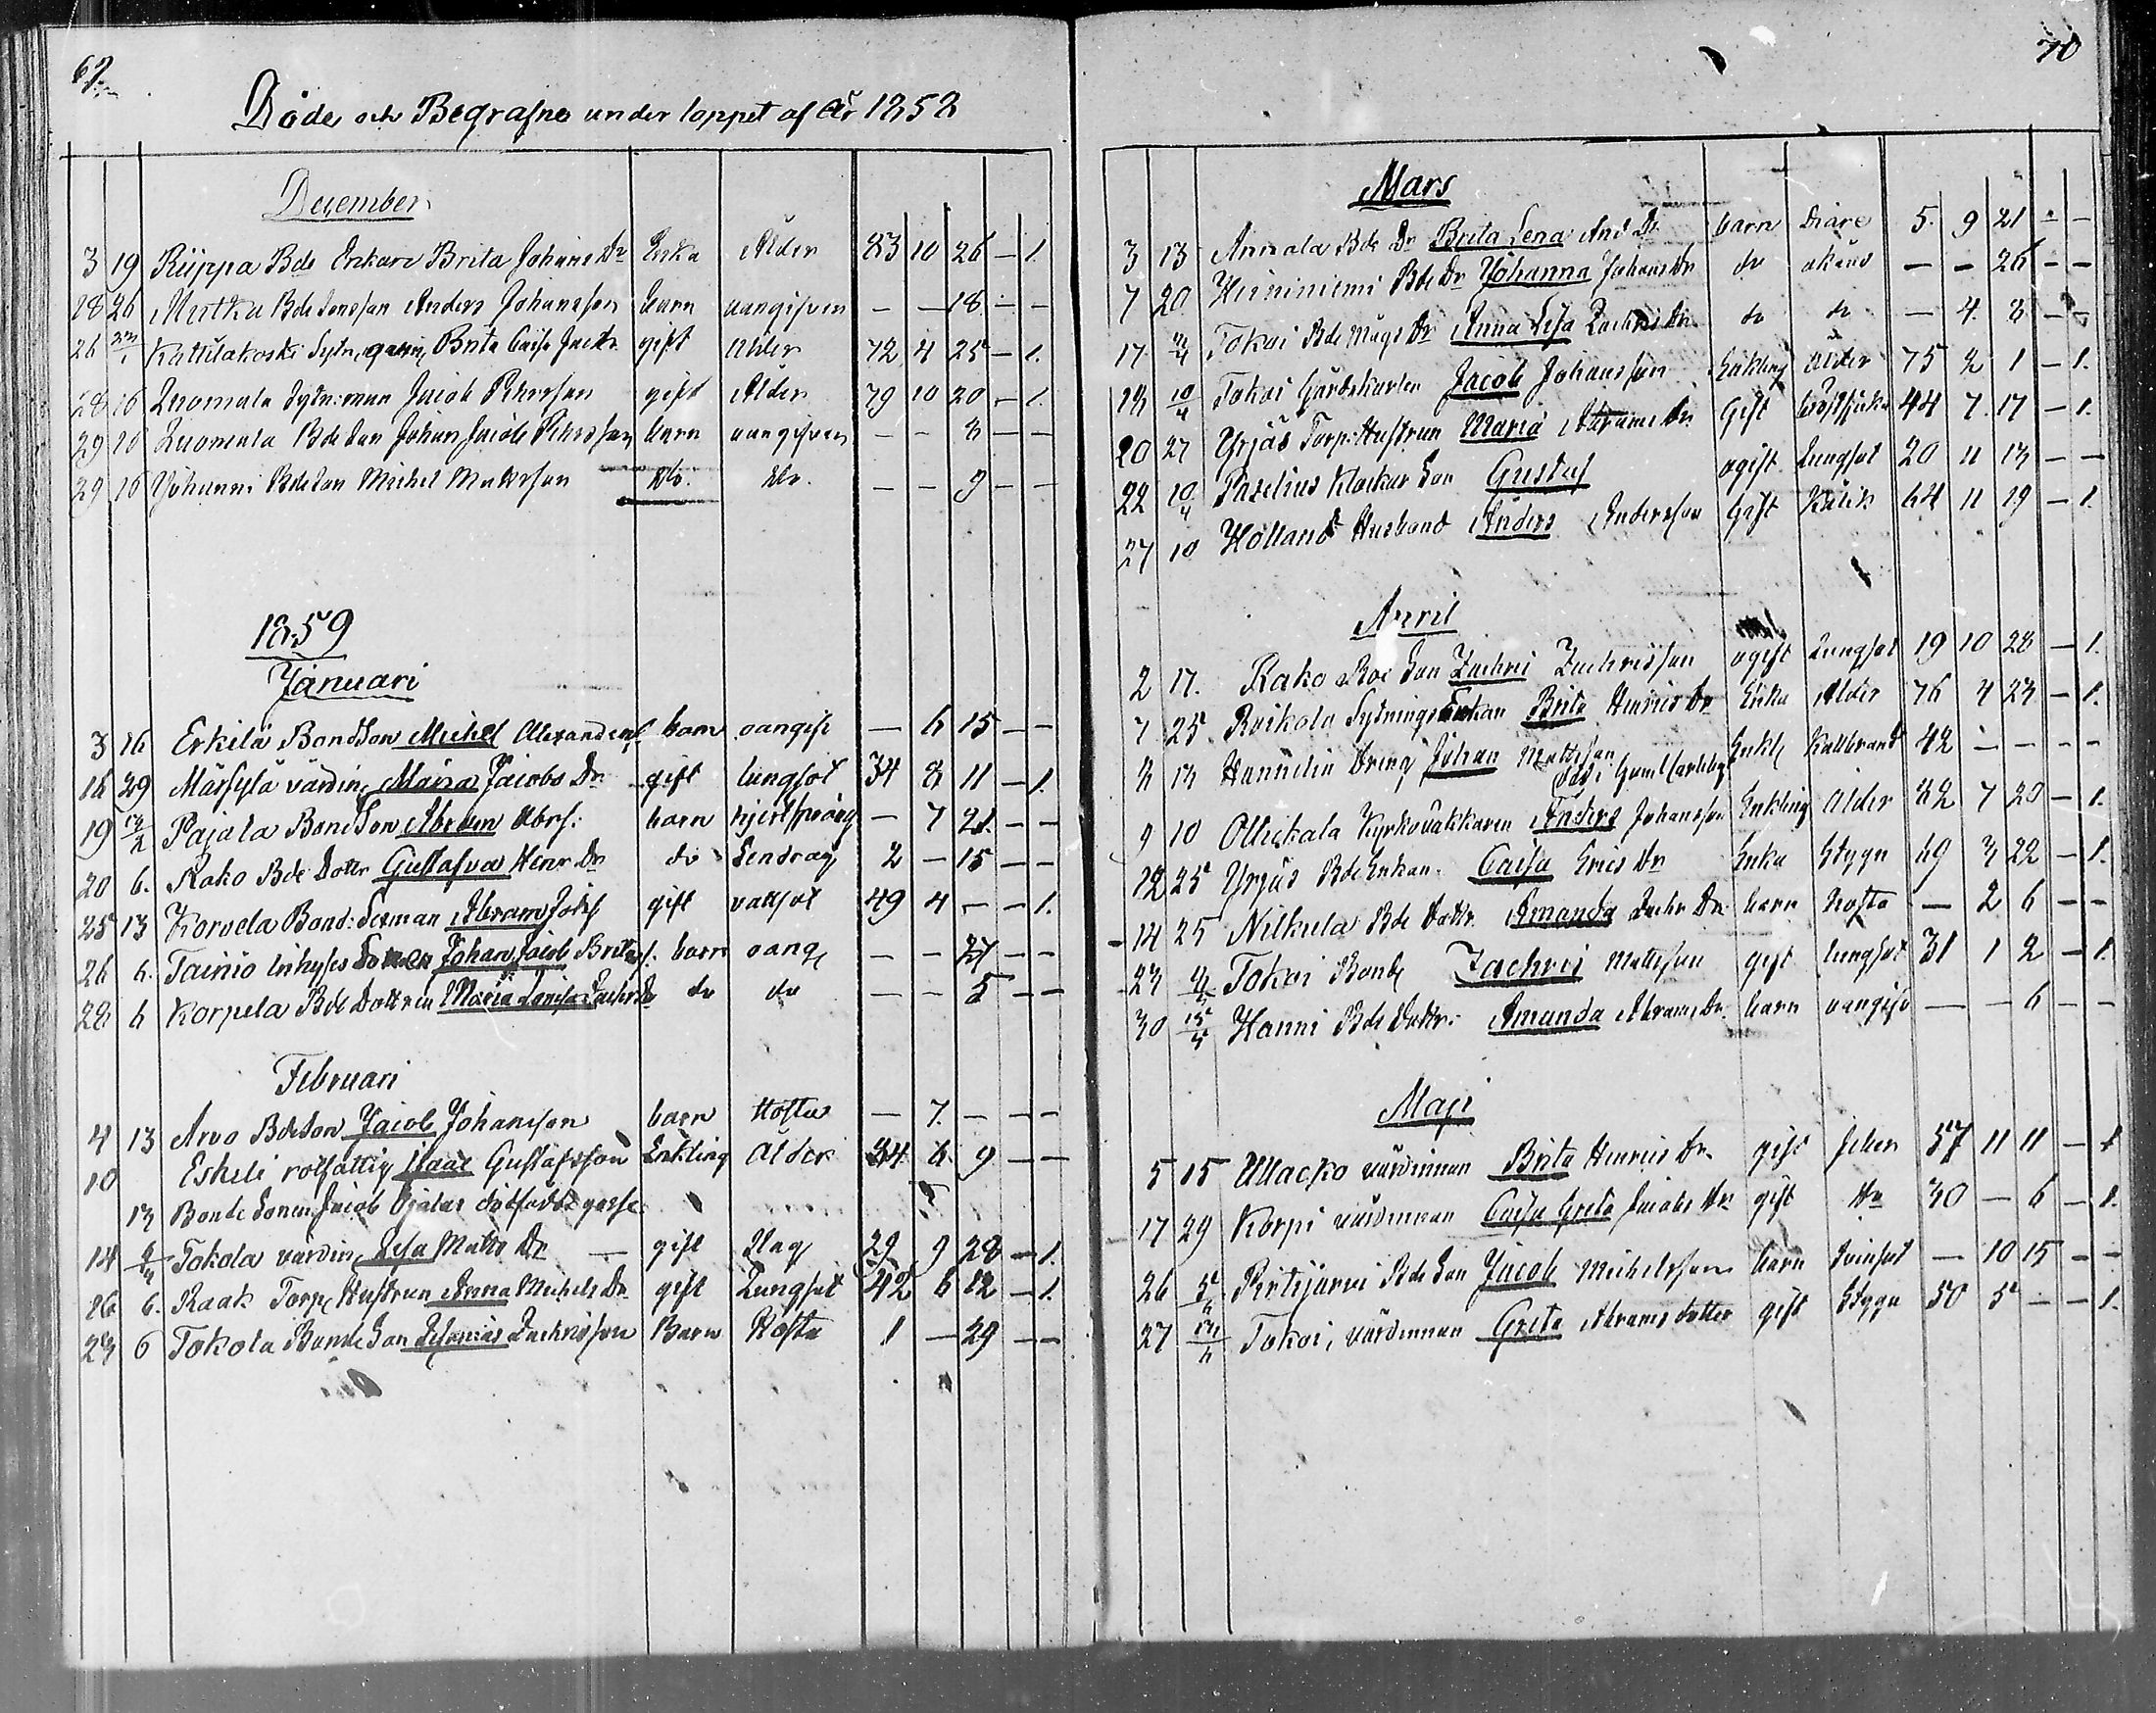 69.
Döde och Begrafne under loppet af År 1858
December
3 19 Riippa Bde Enkan Brita Johans Dr Enka Ålder 83 10 26 — 1.
18 26 Mutka Bde Sonsson Anders Johansson barn oangifven — — 18 — —
26 Kattilakoski Brita Caisa gift Ålder 72 4 25 — 1.
28 16 Luomala Sytn:man Jacob gift Ålder 79 10 20 — 1.
29 16 Luomala Bde Son Johan Jacob barn oangifven — — 8 — —
29 16 Johanni Bde Son Michel Mattsson do. do. — — 9 — —
1859
Januari
3 16 Erkilä BondSon Michel barn oangifv — 6 15 — —
16 29 Märsylä värdin Maria Jacobs Dr gift lungsot 34 8 11 — 1.
19 13/2 Pajala BondSon Abram Abrs: barn — 7 21. — —
20 6. Rako Bde Dotter Gustafva Henr Dr do Sendrag 2 — 15 — —
25 13 Korvela Bond: Abram gift vattsot 49 4 — — 1.
26 6. Tainio Inhyses Sonen Johan Jacob barn oang — — 27 — —
28 6 Korpela Bde Dottren Maria do do — — 5 — —
Februari
4 13 Arvo BdeSon Jacob Johansson barn Hosta — 7. — — —
10 Eskeli rotfattig Isaac Gustafsson Enkling Ålder 84 8. 9 — —
13 Bonde Sonen Jacob Ojalas dödfödde gosse
14 Tokola värdin Lisa Matts Dr — gift Slag 29 9 28 — 1.
16 6. Raak Torp Hustrun Anna Michels Dr gift Lungsot 42 6 12 — 1.
23 6 Tokola Bonde Son Zachrisson Barn Hosta 1 — 29 — —
70
Mars
3 13 Annala Bde Dr Brita Lena And Dr. barn Diare 5. 9 21 — —
7 20 Hirniniemi Bde Dr Johanna Johans Dr do okänd — — 26 — —
17 Tokoi Bde Mågs Dr Anna Lisa Zachris Dr. do do — 4. 8 — —
18 10/4 Tokoi Jacob Johansson Enkling ålder 75 2 1 — 1.
20 27 Yrjäs Torp: Hustrun Maria Abrams Dr. Gift 44 7. 17 — 1.
22 10/4 Paselius Klockar Son Gustaf ogift Lungsot 20 11 13 — —
27 10 Holland Husband Anders Andersson Gift Kolik 64 11 19 — 1.
April
2 17. Rako Bde Son Zachris Zachrisson ogift Lungsot 19 10 28 — 1.
7 25. Roikola Sytnings Enkan Brita Henrics Dr Enka Ålder 76 4 23 — 1.
8 13 Hannelin Dreng Johan Mattsson Enkl Kallbrand 42 — — — —
9 10 Ollickala Kyrkoväkkaren Anders Johansson Enkling Ålder 82 7 20 — 1.
12 25 Yrjäs Bde Enkan. Caisa Erics Dr Enka Stygn 69 3 22 — 1.
14 25 Nikula Bde Dottr. Amanda Zachr Dr barn hosta — 2 6 — —
23 Tokoi Bonde Zachris Mattsson gift lungsot 31 1 2 — 1
30 15/5 Hanni Bde Dottr: Amanda Abrams Dr. barn oangifv — — 6 — —
Maji
5 15 Ullacko värdinnan Brita Henrics Dr. gift feber 57 11 11 — 1
17 29 Korpi värdinnan Caisa Greta Jacobs Dr gift Do 30 — 6 — 1.
26 Pirttijärvi Bde Son Jacob Michelsson barn — 10 15 — —
27 Tokoi, värdinnan Greta Abrams dotter gift Stygn 50 5 — — 1.